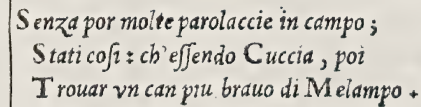 Senza por molte parolaccie in campo;
Stati cosi: ch'essendo Cuccia, poi
Trouar vn can piu brauo di Melampo.